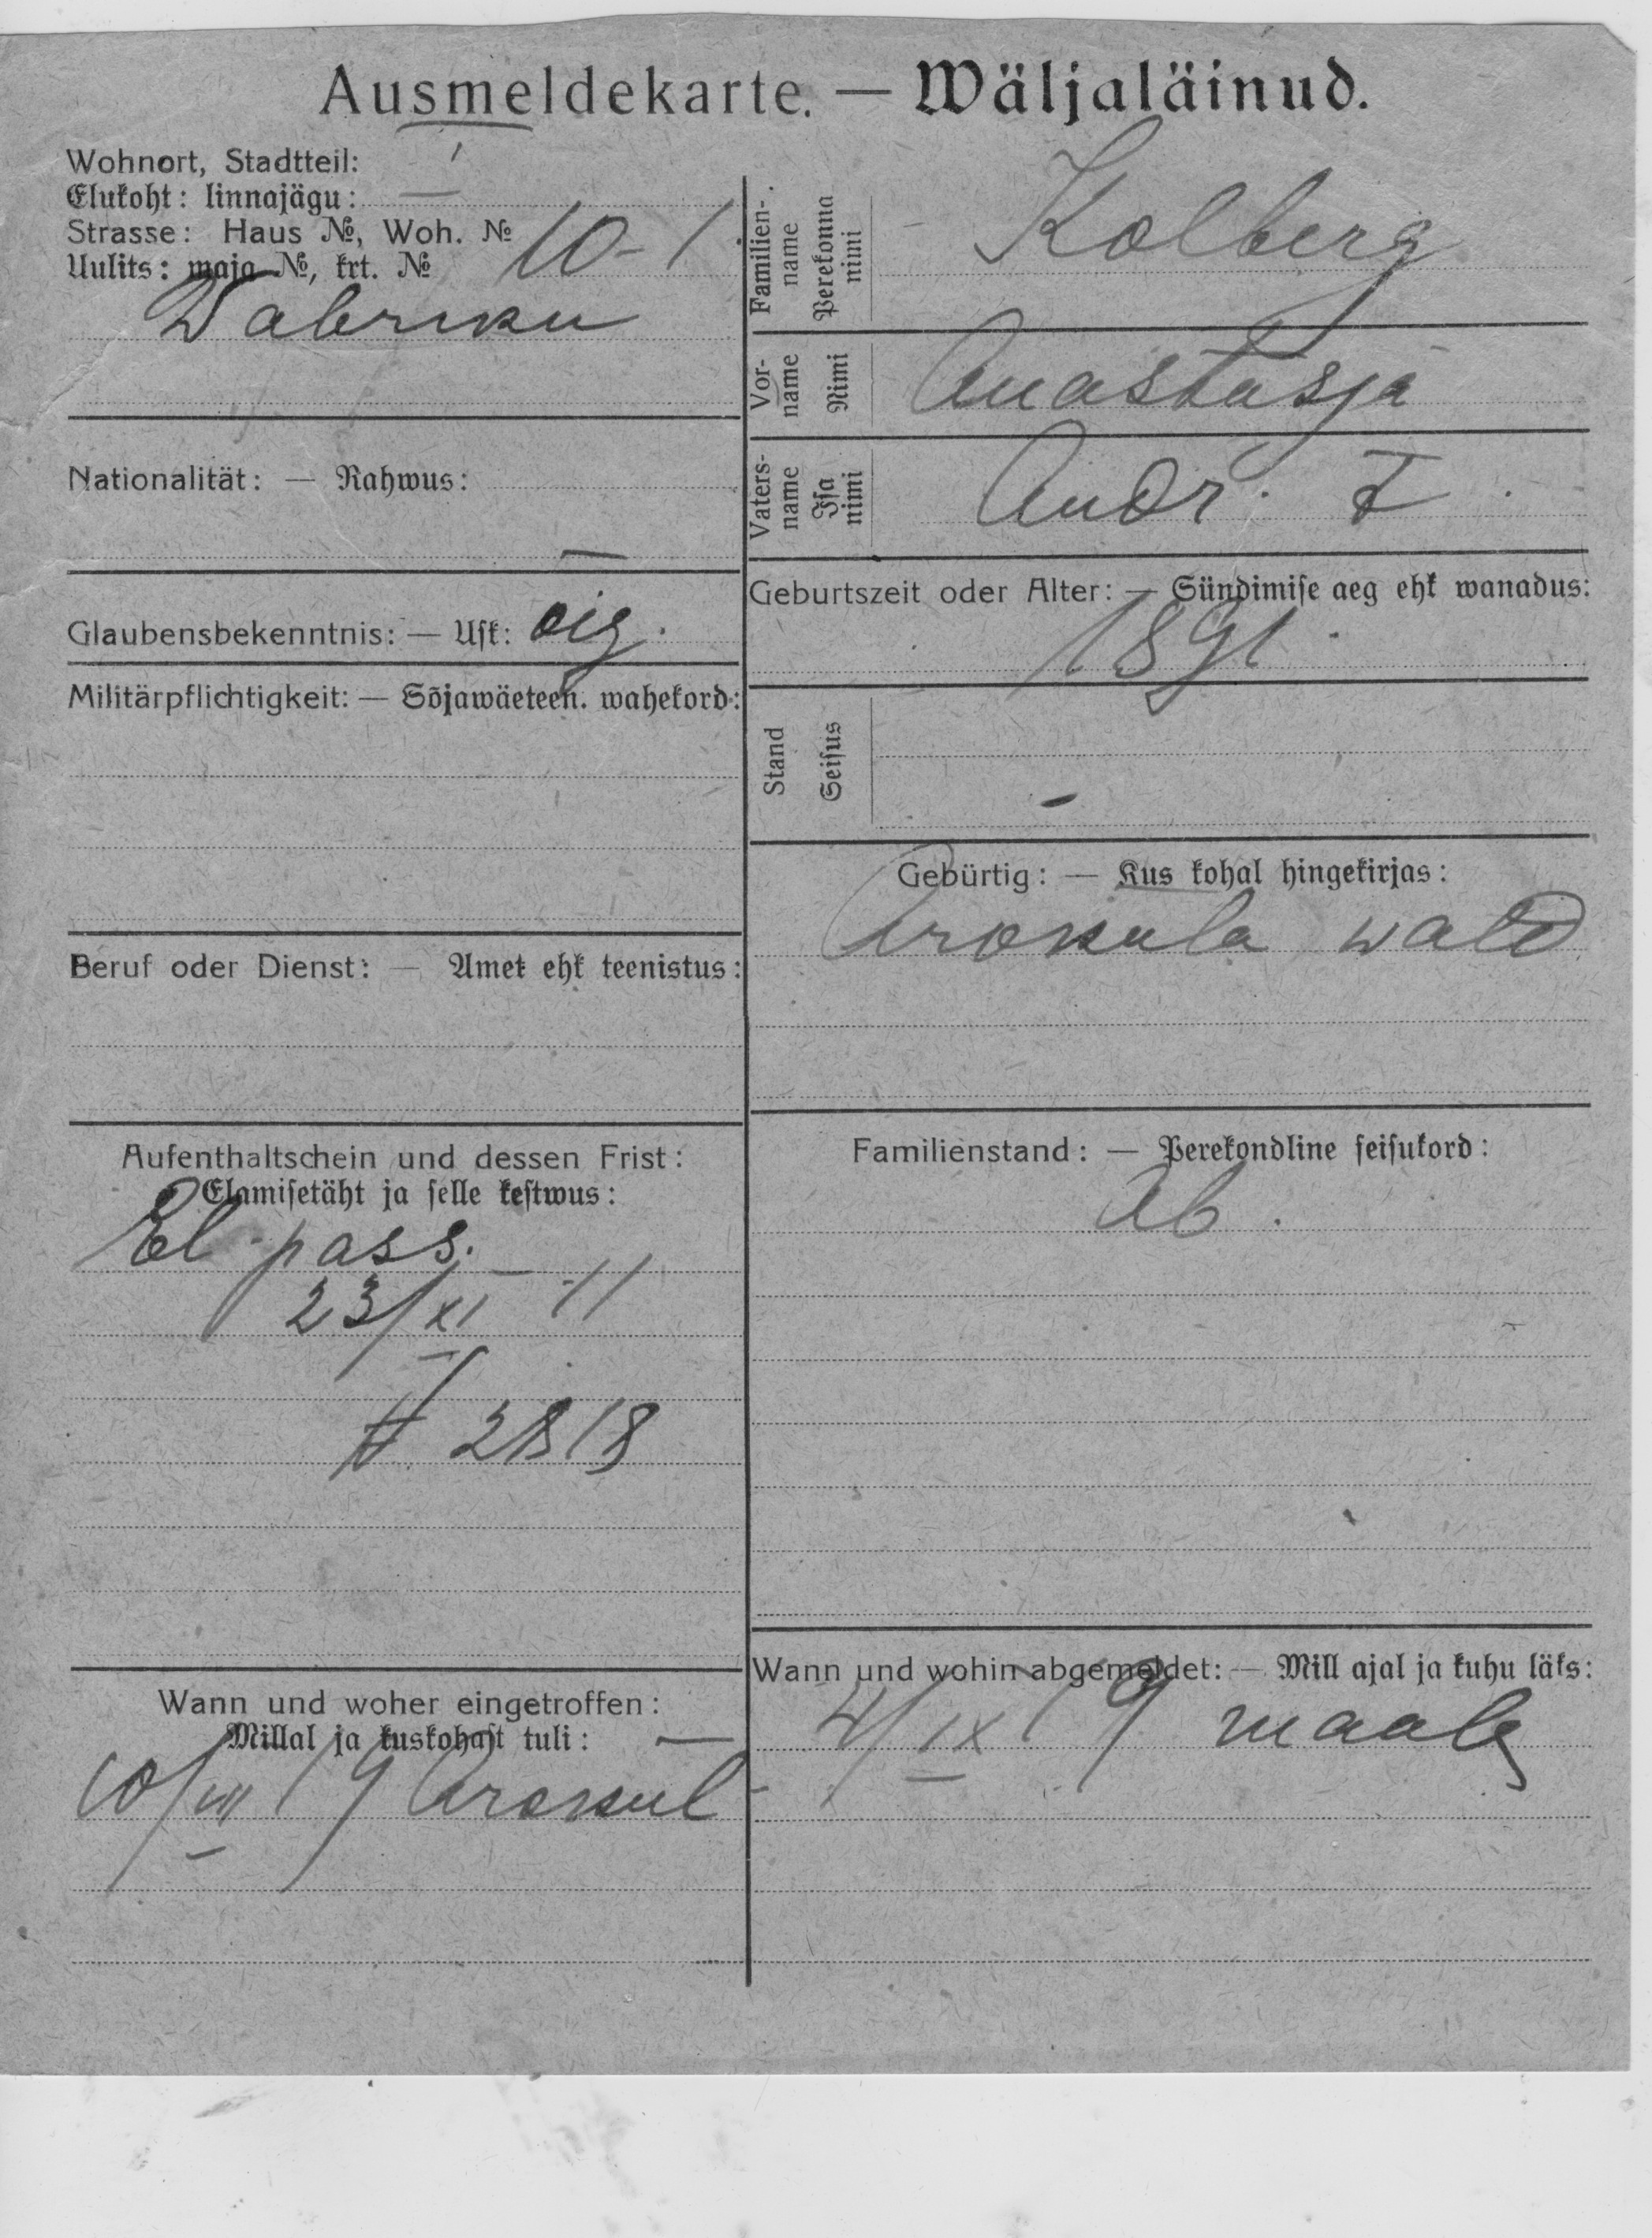 Ausmeldekarte. — Wäljaläinud.
Wohnort, Stadtteil: I
Elukoht: linnajägu:
Strasse: Haus №, Woh. №
Uulits: maja №, krt. № 10-1
Wabriku
Nationalität: — Rahwus: —
Glaubensbekenntnis: — Usk: õig.
Militärpflichtigkeit: — Sõjawäeteen. wahekord:
Beruf oder Dienst: — Amet ehk teenistus:
Aufenthaltschein und dessen Frist:
Elamisetäht ja selle kestwus:
El. pass.
23/XI 11
№ 2818
Wann und woher eingetroffen:
Millal ja kuskohast tuli: —
10/VII 19 Arokül
Familien-name Perekonna nimi Kolberg
Vor-name Nimi Anastasja
Vaters-name Isa nimi Andr. T.
Geburtszeit oder Alter: — Sündimise aeg ehk wanadus:
1891.
Stand Seisus -
Gebürtig: — Kus kohal hingekirjas:
Arokula wald
Familienstand: — Perekondline seisukord:
Ab.
Wann und wohin abgemeldet: — Mill ajal ja kuhu läks:
4/IX 19 maale